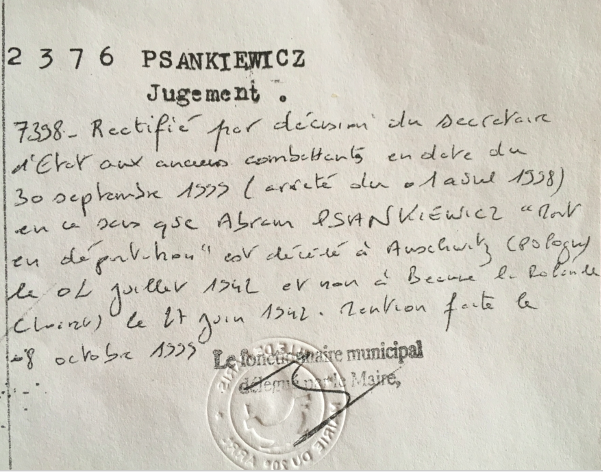 2 3 7 6 PSANKIEWICZ
Jugement .
7398 - Rectifié par décision du secretaire
d'Etat aux anciens combattants en date du
30 septembre 1999 (arrêté du 01 avril 1998)
en ce sens que Abram PSANKIEWICZ "Mort
en déportation" est décédé à Auschwitz (Pologne)
le 02 juillet 1942 et non à Beaune la Rolande
(Loiret) le 27 juin 1942. Mention faite le
08 octobre 1999
Le fonctionnaire municipal
délégué par le Maire,
MAIRIE DU 20e ARR